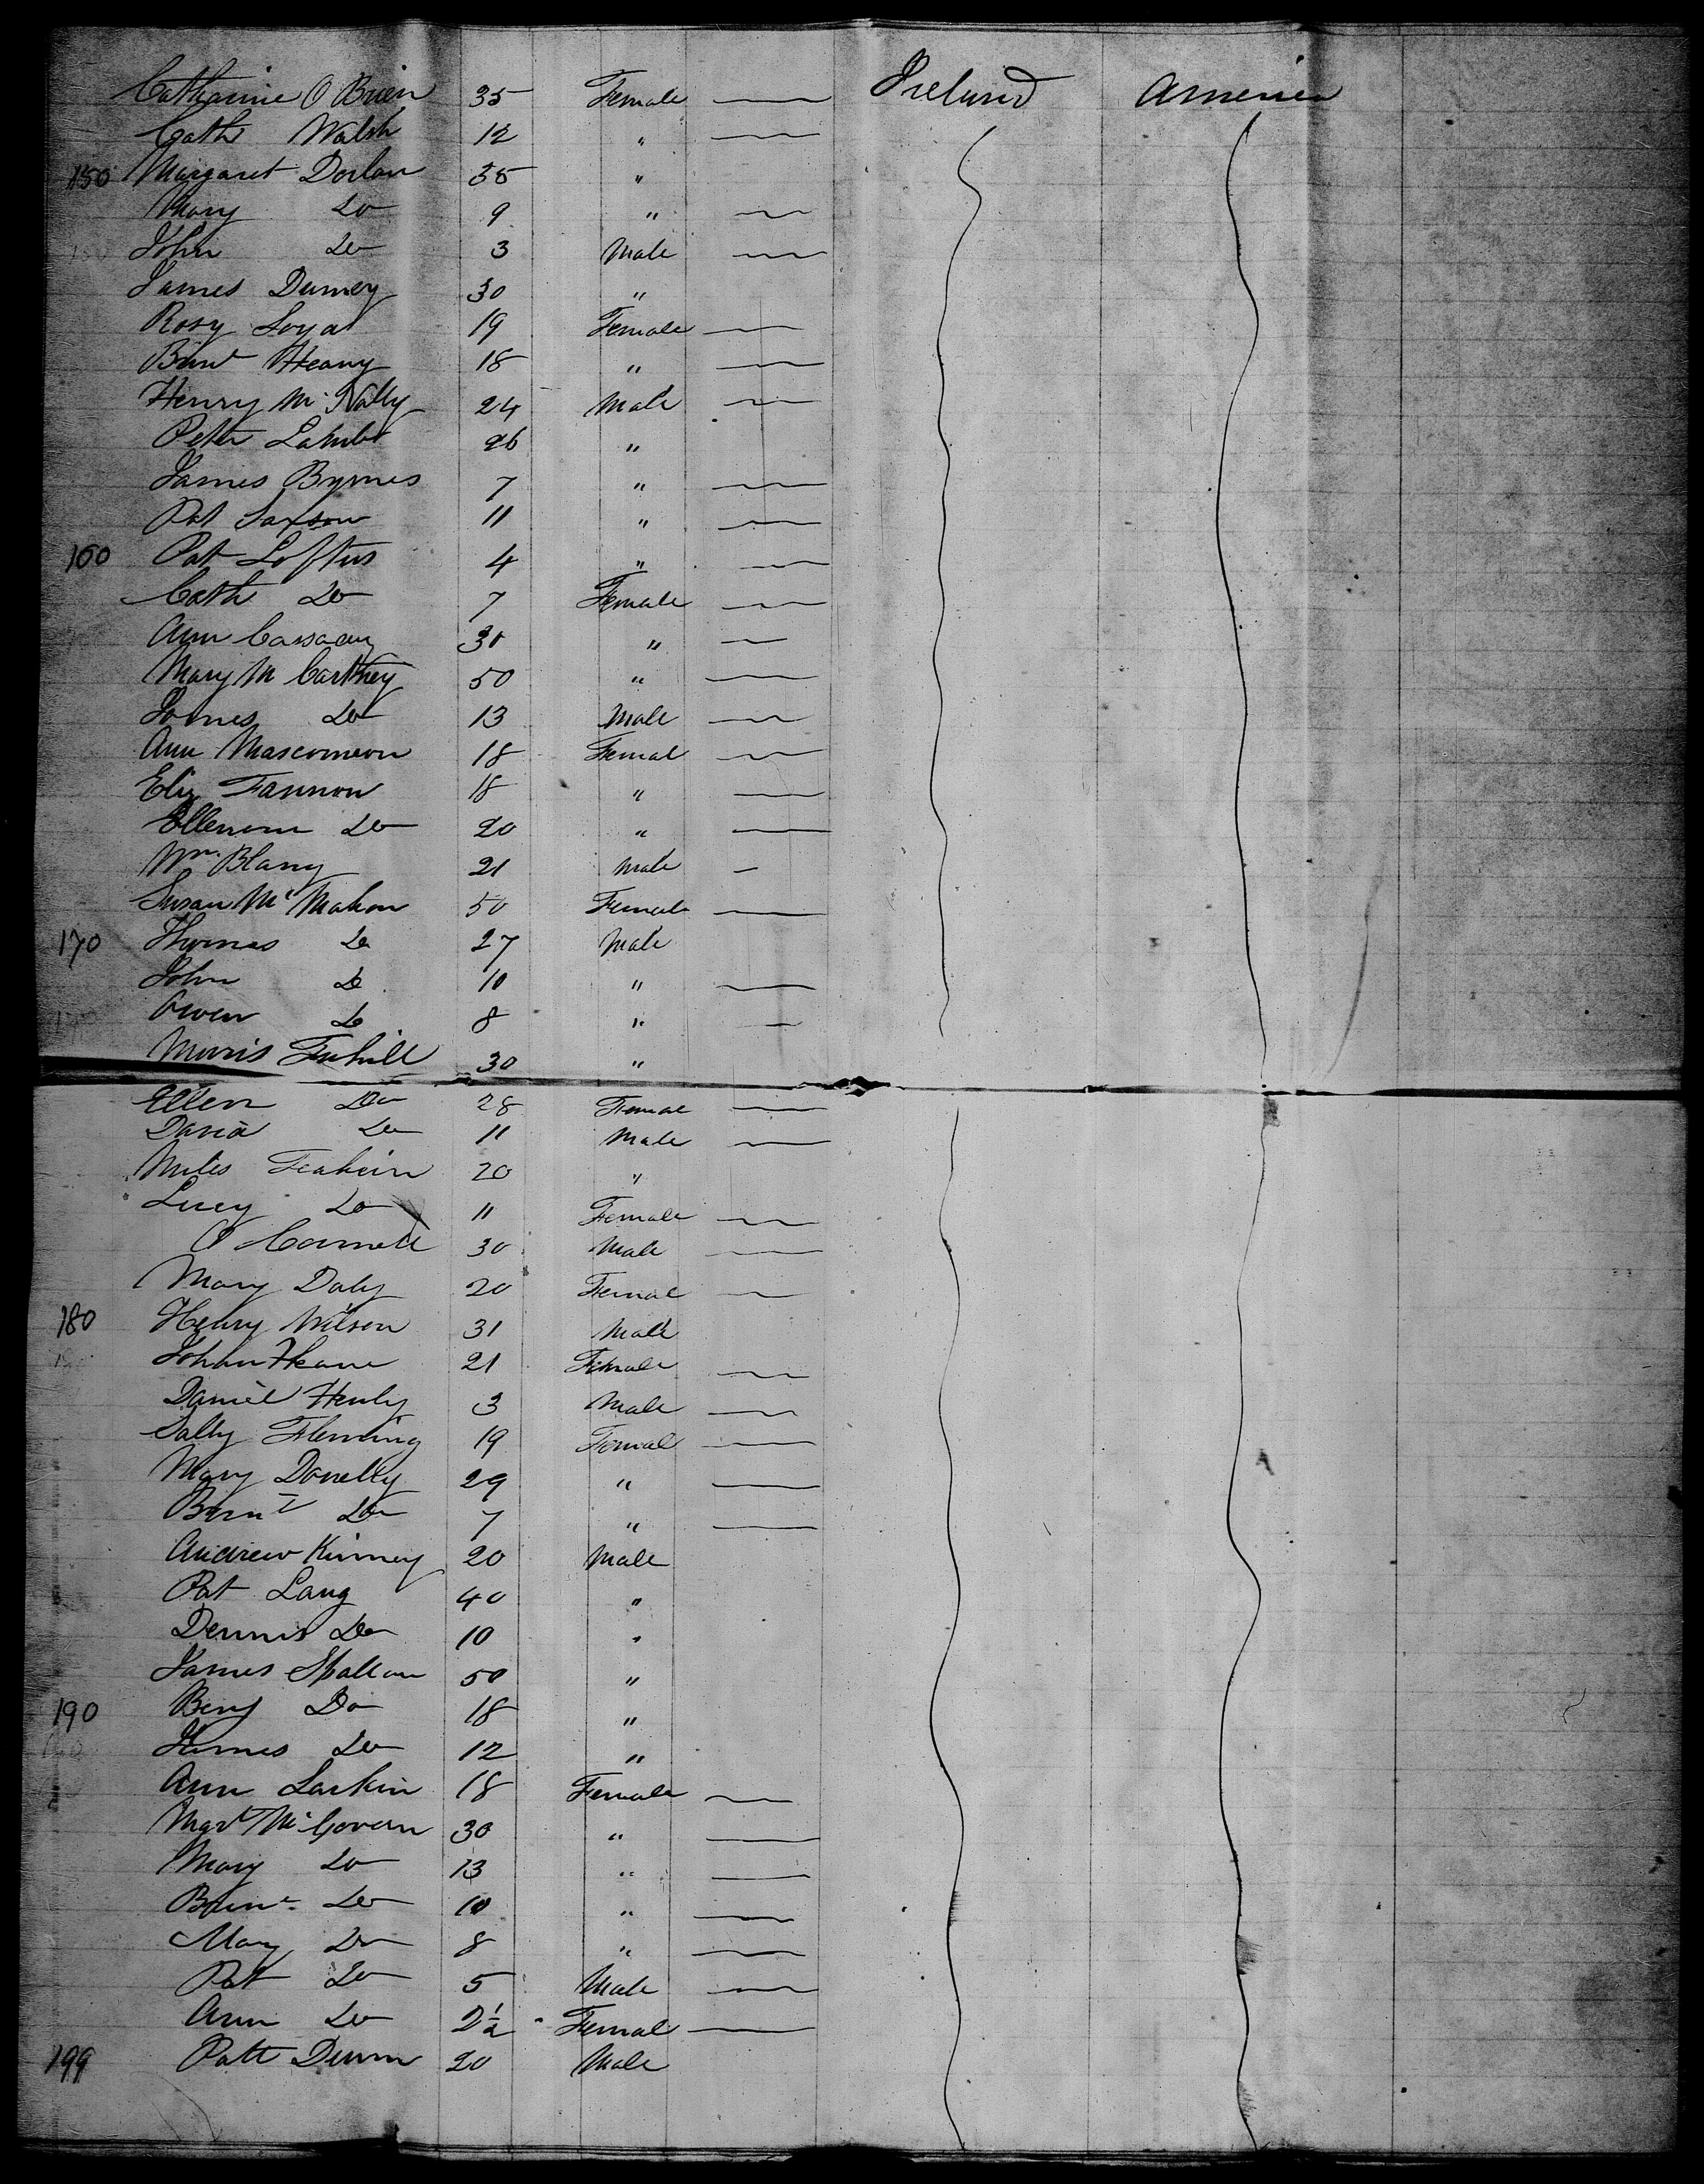 Catharine O Brien 35 Female Ireland America
Cath Walsh 12 "
150 Margaret Dorlan 35 "
Mary Do 9 "
John Do 3 Male
James Dumey 30 "
Rosy Loyal 19 Female
Heany 18 "
Henry Mc Nally 24 Male
Peter Lambt 26 "
James Byrnes 7 "
Pat Saxson 11 "
160 Pat Loftus 4 "
Cath Do 7 Female
Ann Cassaey 30 "
Mary Mc Carthey 50 "
James Do 13 Male
Ann 18 Femal
Eliz Fannon 18 "
Do 20 "
Wm. Blany 21 Male
Susan Mc Mahon 50 Female
170 Thomas Do 27 Male
John Do 10 "
Owen Do 8 "
Morris Tuhill 30 "
Ellen Do 28 Female
David Do 11 Male
Miles 20 "
Lucy Do 11 Female
O Connell 30 Male
Mary Daly 20 Female
180 Henry Wilson 31 Male
21 Female
Daniel Henly 3 Male
Sally Fleming 19 Female
Mary Donelly 29 "
Do 7 "
Andrew Kinney 20 Male
Pat Lang 40 "
Dennis Do 10 "
James 50 "
190 Benj Do 18 "
James Do 12 "
Ann Larkin 18 Female
Margt McGovern 30 "
Mary Do 13 "
Do 10 "
Mary Do 8 "
Pat Do 5 Male
Ann Do 2½ Femal
199 Patt Dunn 20 Male